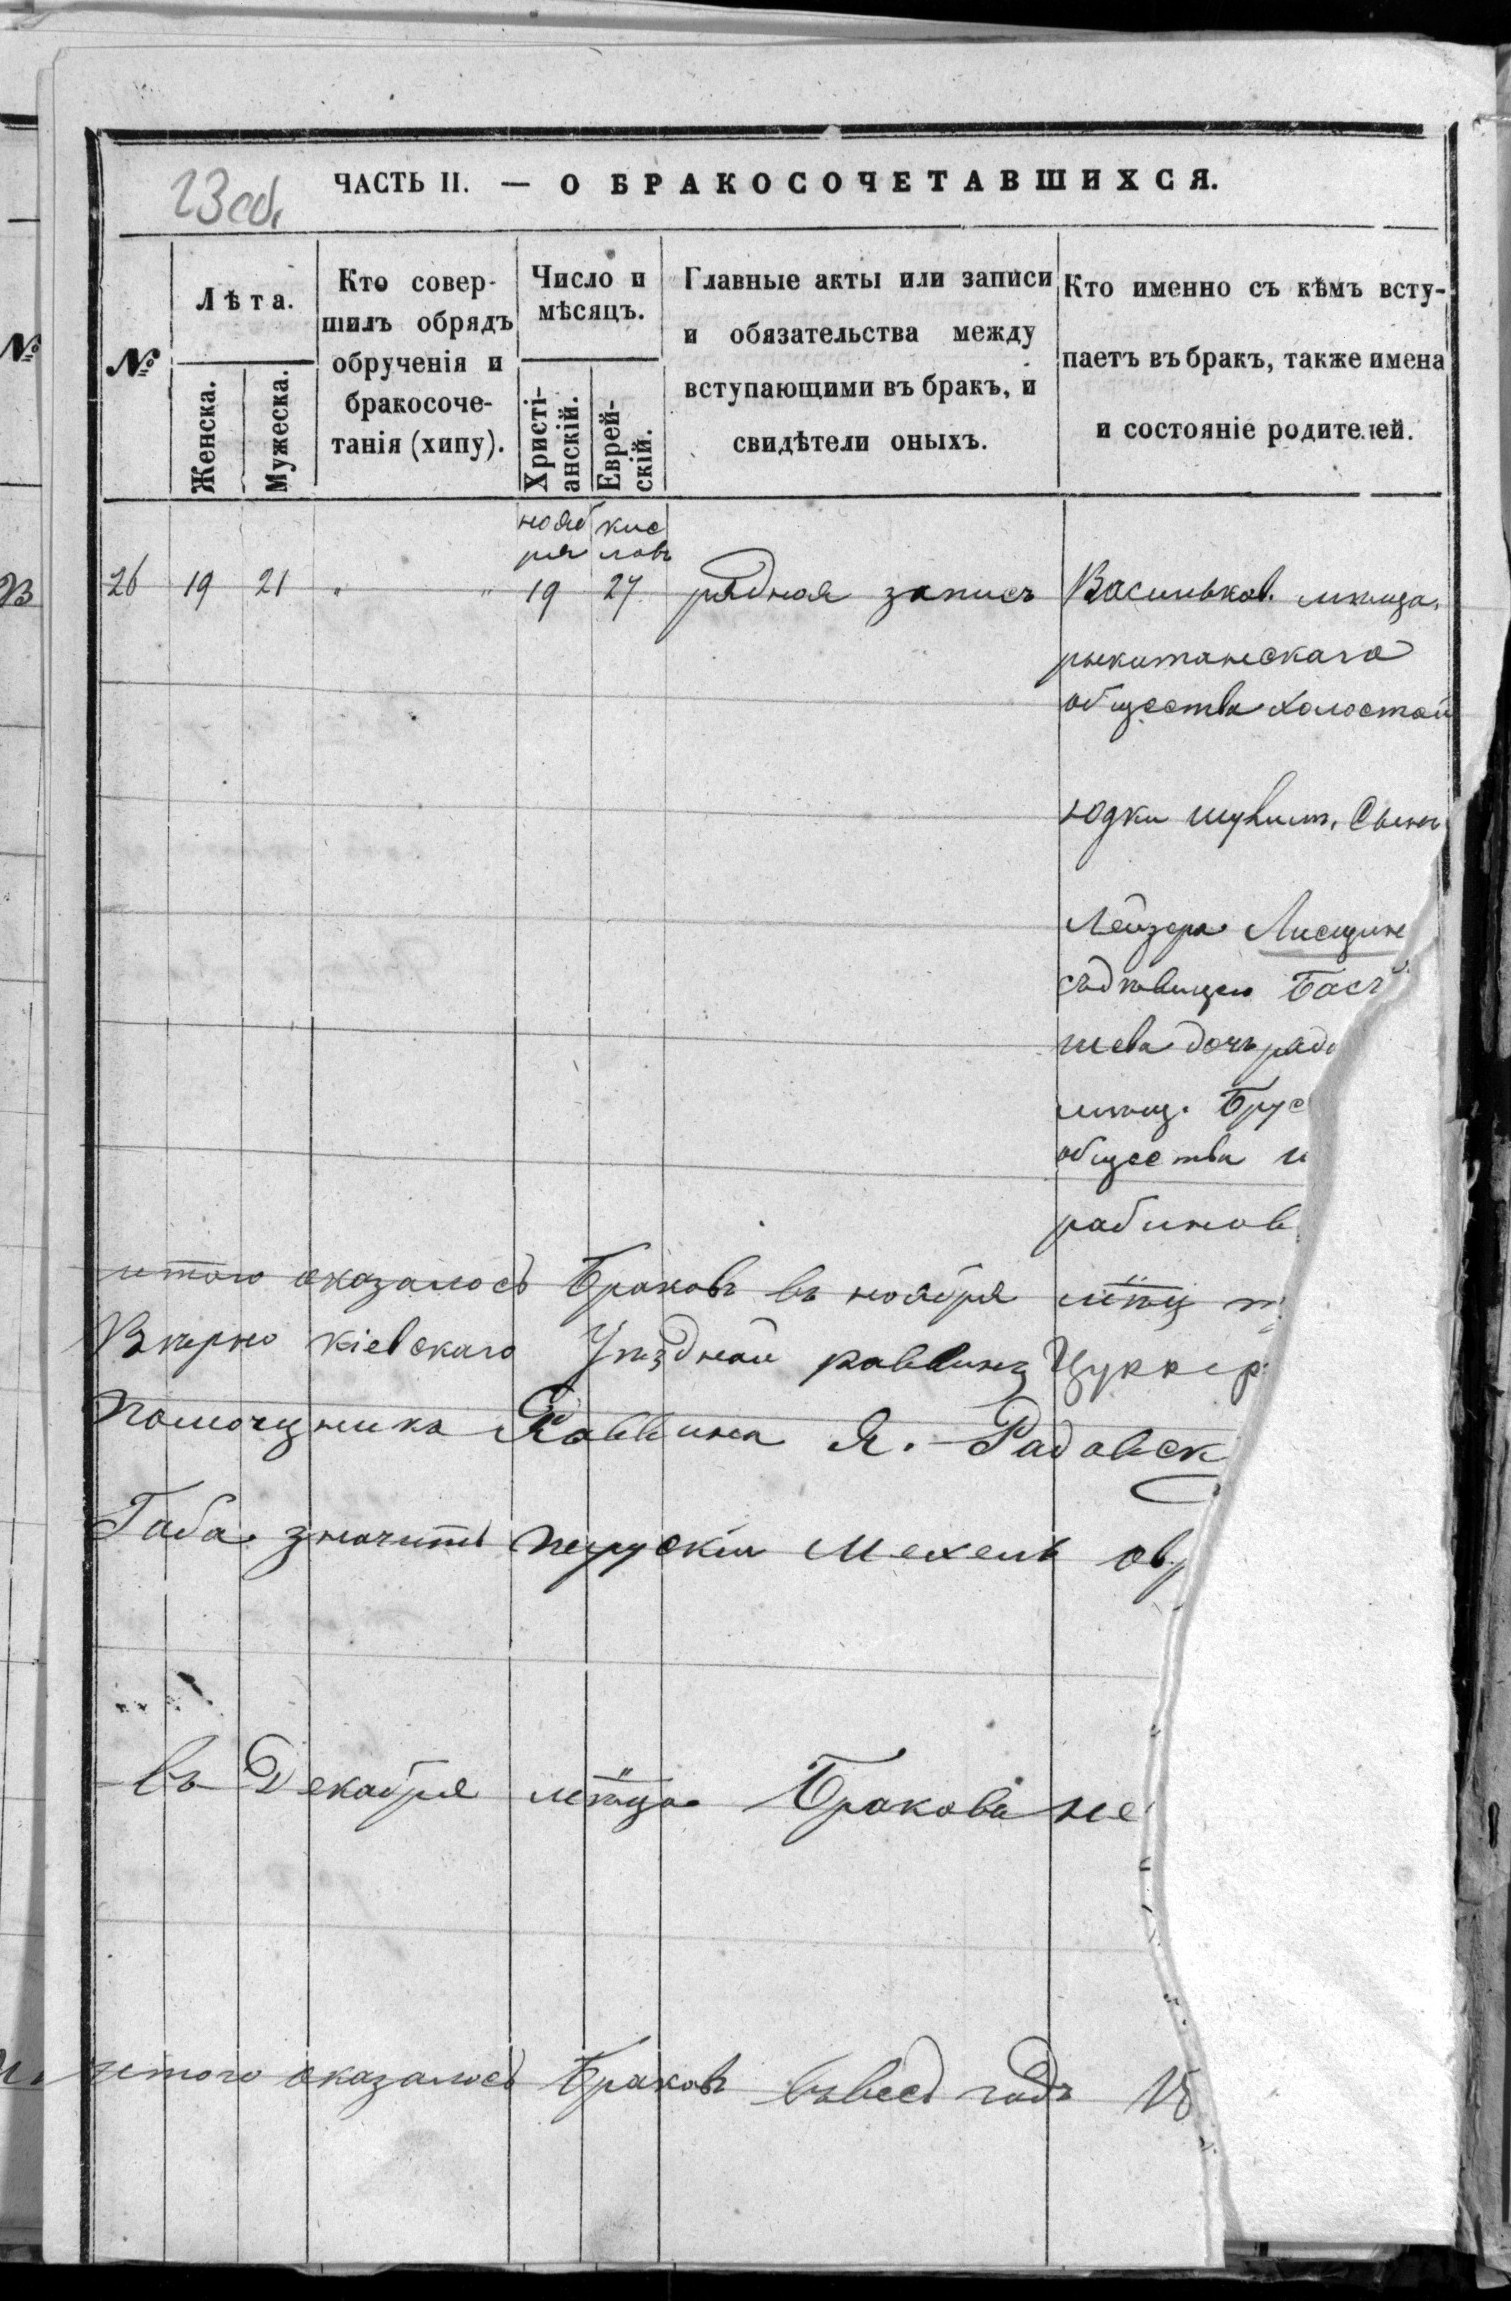 23 об.
ЧАСТЬ II. — О БРАКОСОЧЕТАВШИХСЯ.
№
Лѣта.
Женска.
Мужеска.
Кто совер-
шилъ обрядъ
обрученія и
бракосоче-
танія (хипу).
Число и
мѣсяцъ.
Христі-
анскій.
Еврей-
скій.
Главные акты или записи
и обязательства между
вступающими въ бракъ, и
свидѣтели оныхъ.
Кто именно съ кѣмъ всту-
паетъ въ бракъ, также имена
и состояніе родителей.
нояб кис
ря лов
26 19 21 " " 19 27 рядная запись Васильков. мѣща.
ракитанскаго
общества холостой
юдки шувим. Сынъ
Лейзера Лисцин
съ дѣвицею Бась
шева дочь радо
мѣщ. Брус
общества и
рабинов
итого оказалось Браковъ въ ноября мѣц
Вѣрно кіевскаго Уѣздной раввинъ Цуккер
Помощника Раввина Я. Радовск
Габа. значитъ Мехель ов
въ Декабря мѣца Браковъ не
итого оказалось Браковъ въ весь годъ